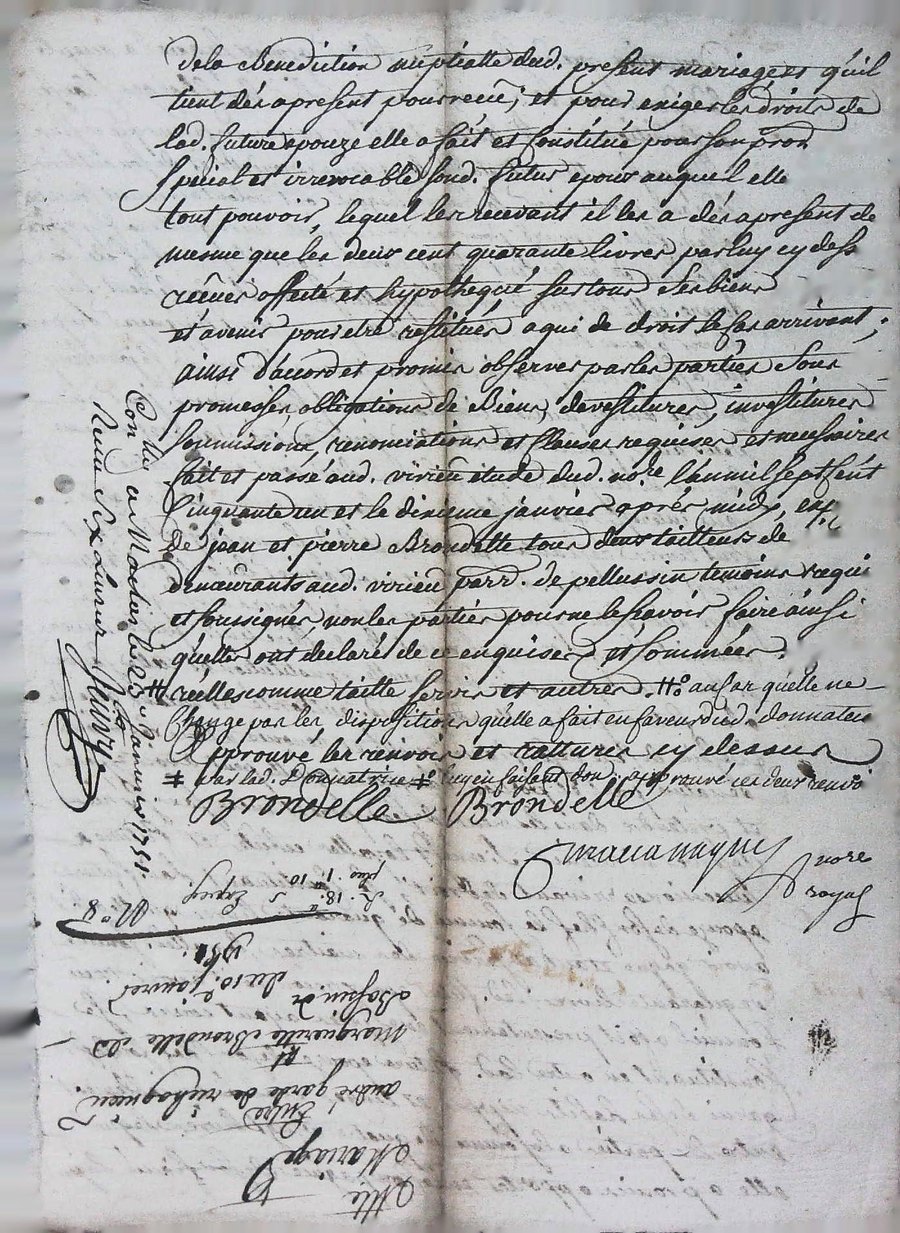 dela Benediction nuptialle dud. present mariage et qu'il
tient dés apresent pour receu; et pour exiger les droits de
lad. future epouze elle a fait et Constitué pour son pror
special et irrevocable sond. futur epoux auquel elle
tout pouvoir, lequel les recevant il les a dés apresent de
mesme que les deux cent quarante livres par luy cy dess
receües affecté et hypothequé sur tous ses biens
et avenir pour etre restitués a qui de droit le cas arrivant;
ainsi d'accord et promis observer par les parties sous
promesses, obligations de Biens, devestitures, investitures
soumissions, renonciations et Clauses requises et necessaires
fait et passé aud. virieu etude dud. nore. l'an mil sept sent
Cinquante un et le dixieme janvier aprés midy, en
De jean et pierre Brondelle tous deux tailleurs de
demeurants aud. virieu parr. de pellussin temoins requi
et soussignés, non les parties pour ne le scavoir faire ainsi
qu'elles ont declaré de ce enquises et sommées.
# réelles comme taille servis et autres. #o au car quelle ne
Change par les disposition qu'elle a fait en faveur dud. donnataire
Approuvé les renvois et ratures cy dessus
‡ par lad. Donnatrice #o luy en faisant don approuvé ces deux renvoi
Brondelle Brondelle
nore
royal
Conlle a Maclas le 23e Janvier 1751
Reçu six livres
No 8.
R. 18 5
plus 1 10
Expey.
Mariage
Entre
andré garde de
Et
Marguerite Brondelle de
du 10e janvier
1751.